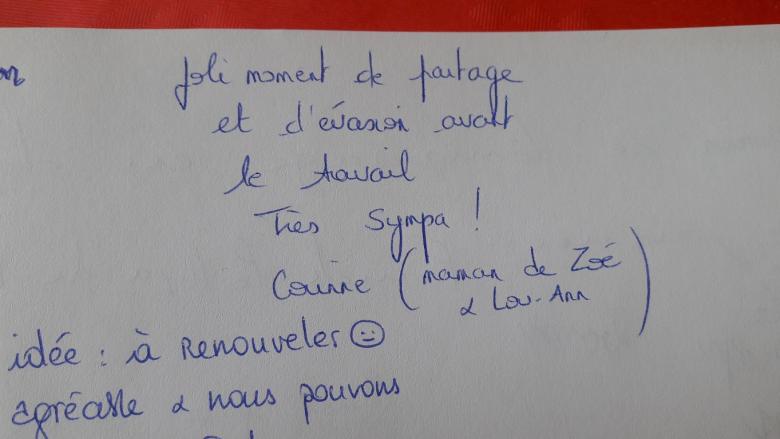 Joli moment de partage
et d'évasion avant
le travail
Très sympa !
Corinne (maman de Zoé
& Lou-Ann)
idée : à renouveler ☺
agréable & nous pouvons